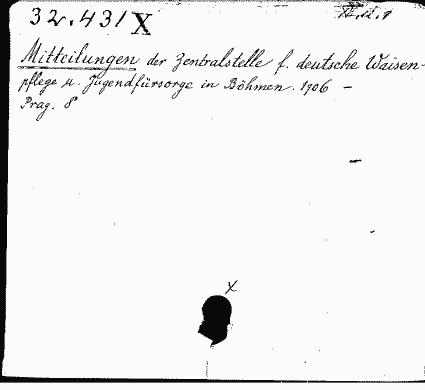 32.431 X
Mitteilungen der Zentralstelle f. deutsche Waisen-
pflege u. Jugendfürsorge in Böhmen. 1906 –
Prag. 8°
x